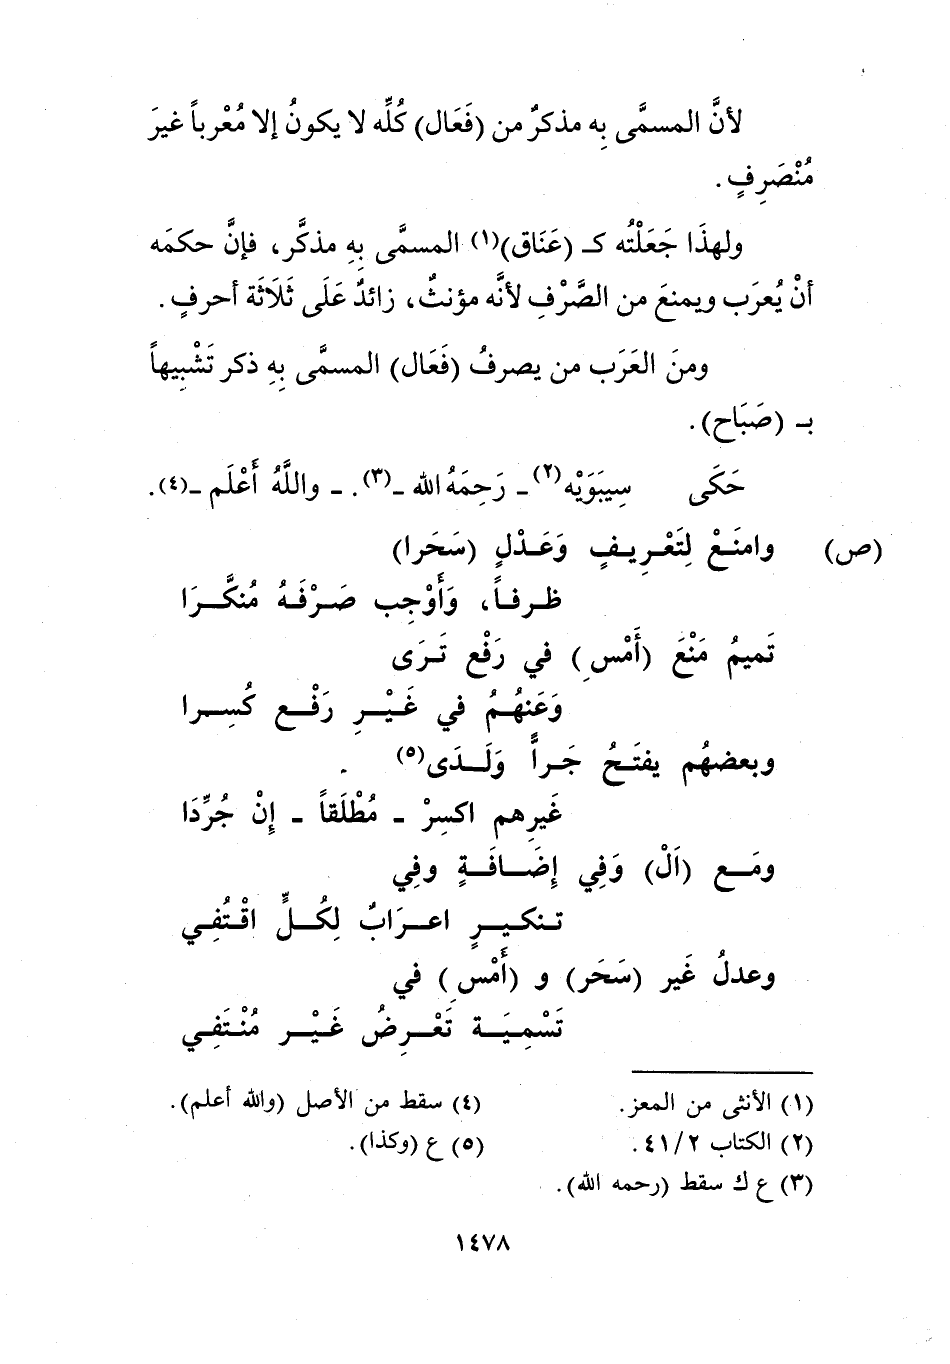 لأنَّ المسمَّى بِه مذكرٌ من (فَعَال) كُلِّه لا يكونُ إلا مُعْرباً غيرَ
مُنْصَرِفٍ.
ولهذَا جَعَلْتُه كـ (عَنَاق)(١) المسمَّى بِهِ مذكَّر، فإنَّ حكمَه
أنْ يُعرَب ويمنعَ من الصَّرْفِ لأنَّه مؤنثٌ، زائدٌ عَلَى ثَلَاثَة أحرفٍ.
ومنَ العَرَب من يصرفُ (فَعَال) المسمَّى بِهِ ذكر تَشْبِيهاً
بـ (صَبَاح).
حَكَى سِيبَوَيْه(٢) ـ رَحِمَهُ الله ـ(٣). ـ واللَّهُ أَعْلَم ـ(٤).
(ص) وامنَعْ لِتَعْرِيفٍ وَعَدْلٍ (سَحَرا)
ظرفاً، وَأَوْجِب صَرْفَهُ مُنَكَّرَا
تَميمُ مَنْعَ (أَمْسِ) في رَفْع تَرَى
وَعَنهُمُ في غَيْرِ رَفْع كُسِرا
وبعضهُم يفتَحُ جَراًّ وَلَدَى(٥)
غَيرِهم اكسِرْ ـ مُطْلَقاً ـ إنْ جُرِّدَا
ومَع (اَلْ) وَفِي إِضَافَةٍ وفِي
تنكيرٍ اعرَابٌ لِكُلٍّ اقْتُفِي
وعدلُ غَير (سَحَر) و (أَمْسِ) في
تَسْمِيَة تَعْرِضُ غَيْر مُنْتَفِي
(١) الأنثى من المعز.
(٢) الكتاب ٤١/٢.
(٣) ع ك سقط (رحمه الله).
(٤) سقط من الأصل (والله أعلم).
(٥) ع (وكذا).
١٤٧٨